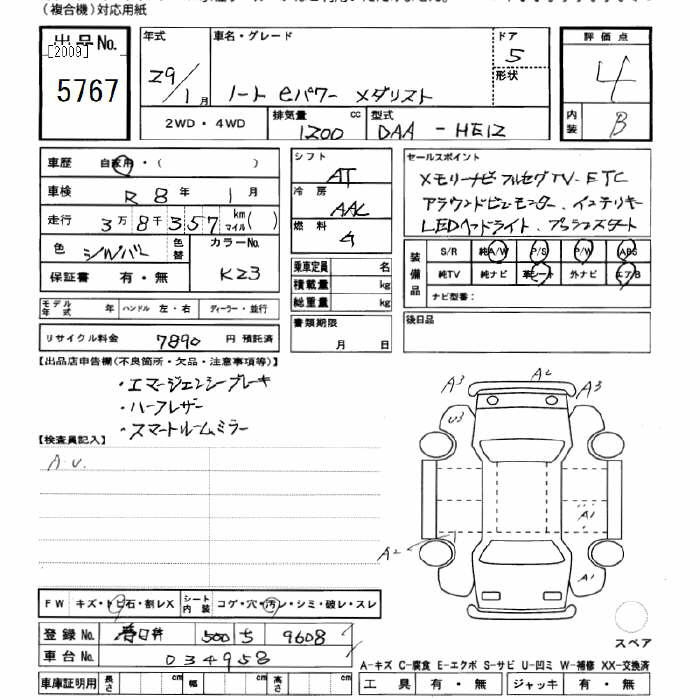 (複合機)対応用紙
出品No.
[2009]
5767
年式
29/1月
車名・グレード
ノート eパワー メダリスト
ドア
5
形状
評価点
4
内装
B
2WD・4WD
排気量 1200 cc
型式 DAA - HE12
車歴 自家用・( )
車検 R 8年 1月
走行 3万8千357 km マイル( )
色 シルバー 色替
カラーNo. K23
保証書 有・無
モデル年式 年 ハンドル 左・右 ディーラー・並行
リサイクル料金 7890 円 預託済
シフト AT
冷房 AAC
燃料
乗車定員 名
積載量 kg
総重量 kg
書類期限
月 日
セールスポイント
メモリーナビ フルセグTV・ETC
アラウンドビューモニター・インテリキー
LEDヘッドライト・プッシュスタート
装備品
S/R 純A/W P/S P/W ABS
純TV 純ナビ 革シート 外ナビ エアB
ナビ型番:
後日品
【出品店申告欄(不良箇所・欠品・注意事項等)】
・エマージェンシーブレーキ
・ハーフレザー
・スマートルームミラー
【検査員記入】
A.U.
A3 A2 A3
U3
A1
A2
A1
FW キズ・トビ石・割レX シート内装 コゲ・穴・汚レ・シミ・破レ・スレ
登録No. 春日井 500 ち 9608
車台No. 034958
スペア
A-キズ C-腐食 E-エクボ S-サビ U-凹ミ W-補修 XX-交換済
車庫証明用 長さ cm 幅 cm 高さ cm
工具 有・無 ジャッキ 有・無